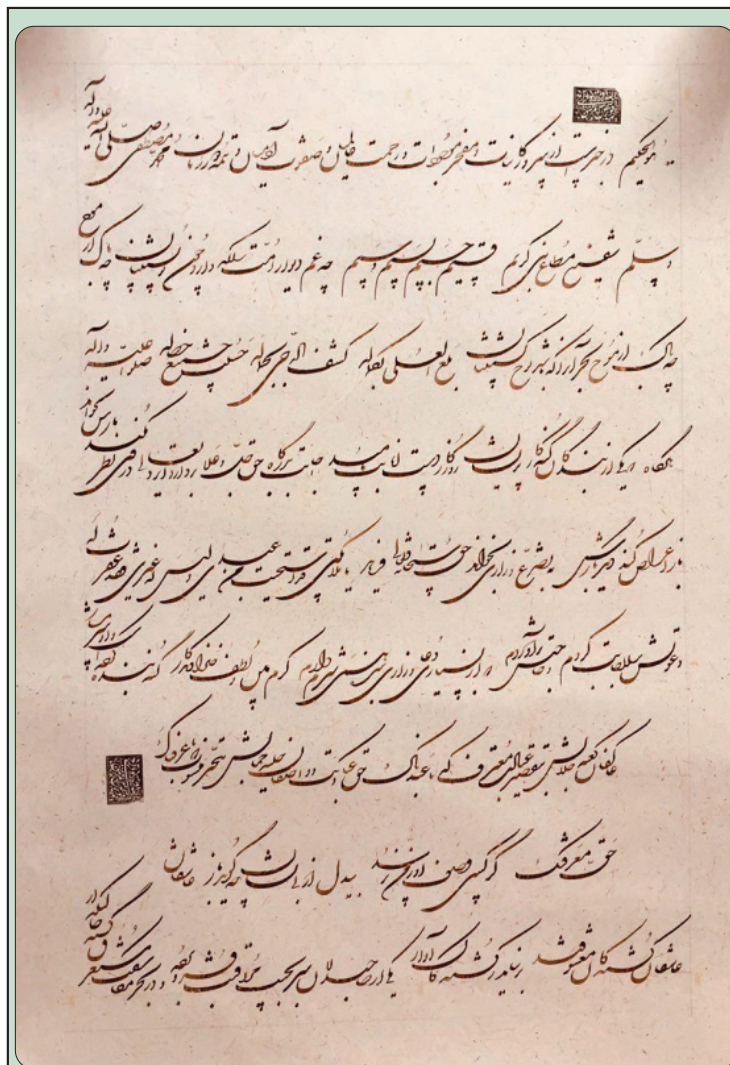 هو الحکیم در خبرست از سرور کاینات و مفخر موجودات و رحمت عالمیان و صفوت آدمیان و تتمه دور زمان محمد مصطفی صلی الله علیه و آله
و سلم شفیع مطاع نبی کریم قسیم جسیم نسیم وسیم چه غم دیوار امت را که دارد چون تو پشتیبان چه باک از موج
چه باک از موج بحر آنرا که باشد نوح کشتیبان بلغ العلی بکماله کشف الدجی بجماله حسنت جمیع خصاله صلوا علیه و آله
هرگاه که یکی از بندگان گنه کار پریشان روزگار دست انابت به امید اجابت بدرگاه حق جل و علا بردارد ایزد تعالی در وی نظر نکند بازش بخواند
باز اعراض کند دیگر بارش بتضرع و زاری بخواند حق سبحانه و تعالی فرماید یا ملائکتی قد استحییت من عبدی و لیس له غیری فقد غفرت له
دعوتش اجابت کردم و حاجتش برآوردم که از بسیاری دعا و زاری بنده همی شرم دارم کرم بین و لطف خداوندگار گنه بنده کرده است و او شرمسار
عاکفان کعبه جلالش بتقصیر عبادت معترف که ما عبدناک حق عبادتک و واصفان حلیه جمالش بتحیر منسوب که ما عرفناک
حق معرفتک گر کسی وصف او ز من پرسد بیدل از بی نشان چه گوید باز عاشقان
عاشقان کشتگان معشوقند برنیاید ز کشتگان آواز یکی از صاحبدلان سر بجیب مراقبت فرو برده بود و در بحر مکاشفت مستغرق گشته حالی که از